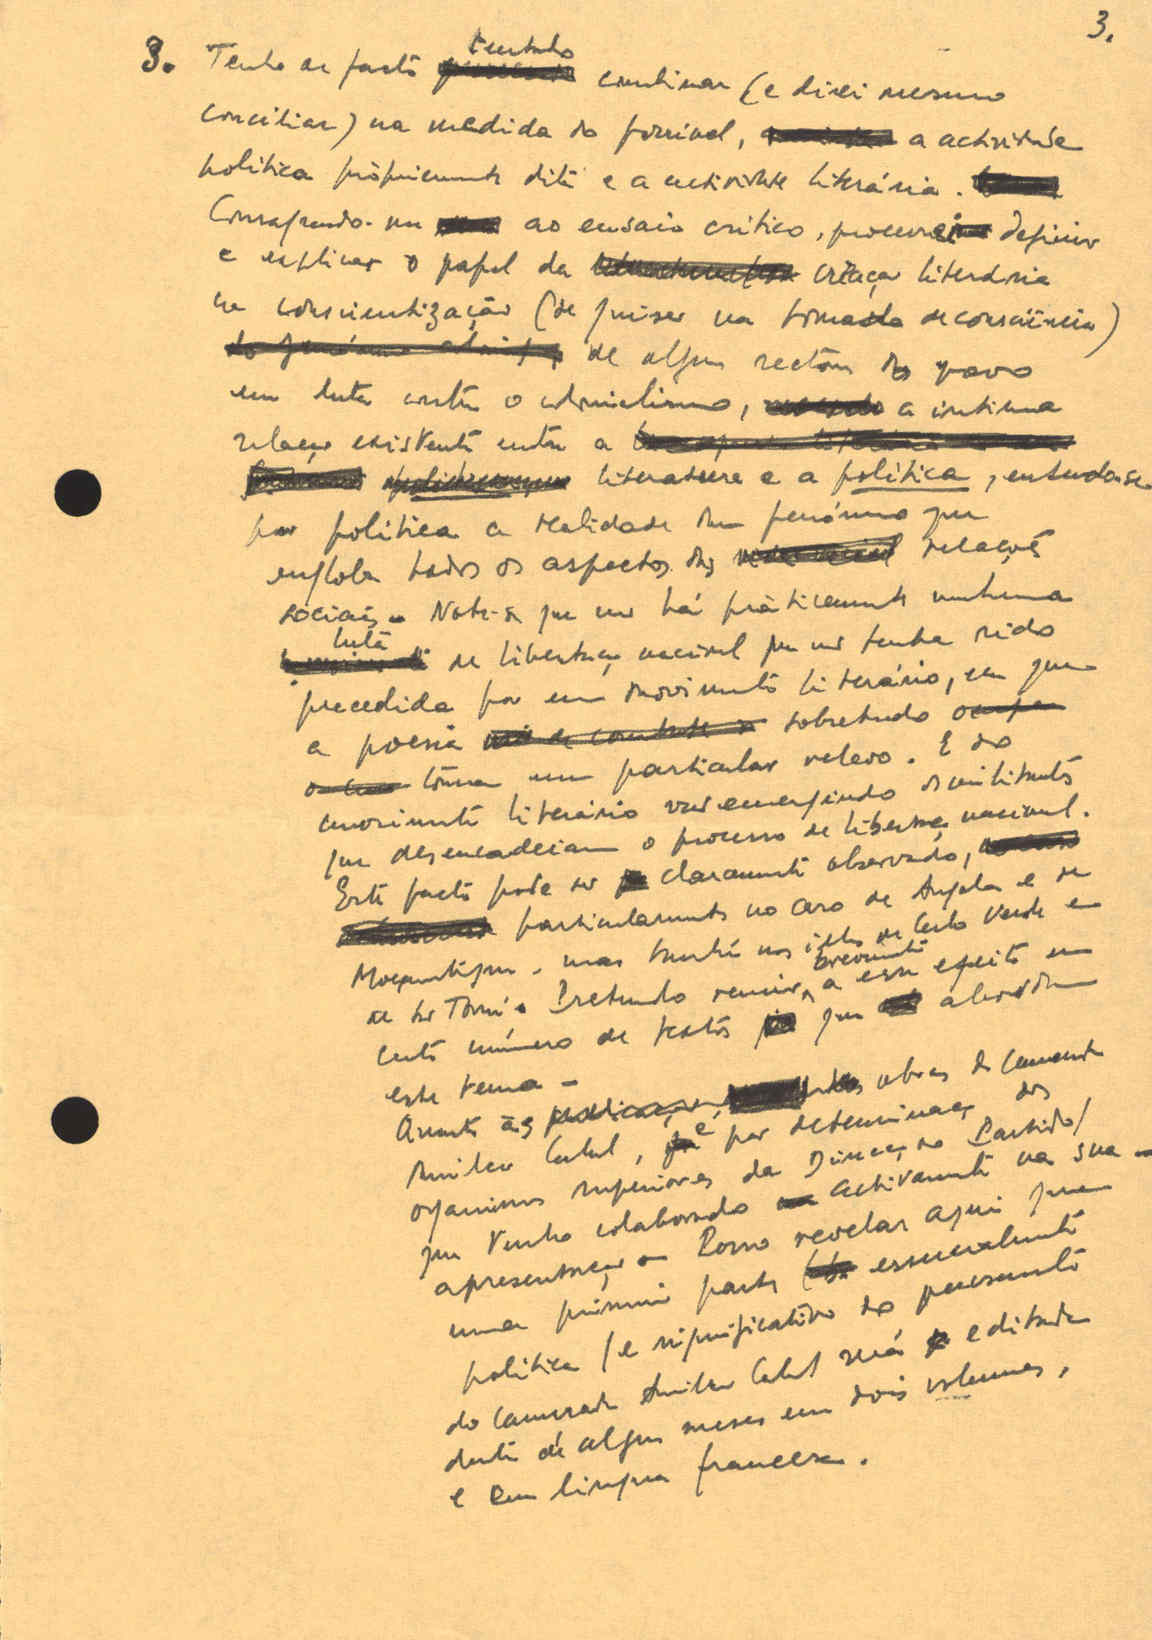 3.
3. Tenho de facto tentado combinar (e direi mesmo
conciliar) na medida do possível, a actividade
política pròpriamente dita e a actividade literária.
Consagrando-me ao ensaio crítico, procurei definir
e explicar o papel da criação literária
na consciencitização (se quiser na tomada de consciência)
de alguns sectores do povo
em luta contra o colonialismo, a íntima
relação existente entre a
literatura e a política, entendendo-se
por política a realidade dum fenómeno que
engloba todos os aspectos das relações
sociais. Note-se que não há pràticamente nenhuma
luta de libertação nacional que não tenha sido
precedida por um movimento literário, em que
a poesia sobretudo
toma um particular relevo. E do
movimento literário vão emergindo os militantes
que desencadeiam o processo de libertação nacional.
Este facto pode ser claramente observado,
particularmente no caso de Angola e de
Moçambique, mas também nas ilhas de Cabo Verde e
de São Tomé. Pretendo reunir, brevemente a esse efeito um
certo número de textos que abordam
este tema.
Quanto às obras do Camarada
Amílcar Cabral, é por determinação dos
organismos superiores da Direcção do Partido
que tenho colaborado activamente na sua
apresentação. Posso revelar aqui que
uma primeira parte essencialmente
política e significativa do pensamento
do Camarada Amílcar Cabral será editada
dentro de alguns meses em dois volumes,
e em língua francesa.